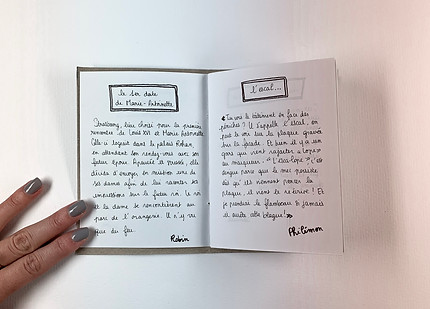 le 1er date
de Marie-Antoinette
Strasbourg, lieu choisi pour la première
rencontre de Louis XVI et Marie Antoinette.
Celle-ci logeait dans le palais Rohan,
en attendant son rendez-vous avec son
futur époux. Épuisée et pressée, elle
décida d'envoyer en mission une de
ses dames afin de lui raconter ses
impressions sur le futur roi. Le roi
et la dame se rencontrèrent au
parc de l'orangerie. Il n'y vit
que du feu.
Robin
L'escal...
« Tu vois le bâtiment en face des
péniches ? Il s'appelle l'escal, on
peut le voir sur la plaque gravée
sur la façade. Et bien il y a un
gars qui vient rajouter « lope »
au marqueur. « L'escalope », c'est
dingue parce que le mec persiste
dès qu'ils viennent poncer la
plaque, il vient le réécrire ! Et
je prendrai le flambeau si jamais
il arrête cette blague ! »
Philémon